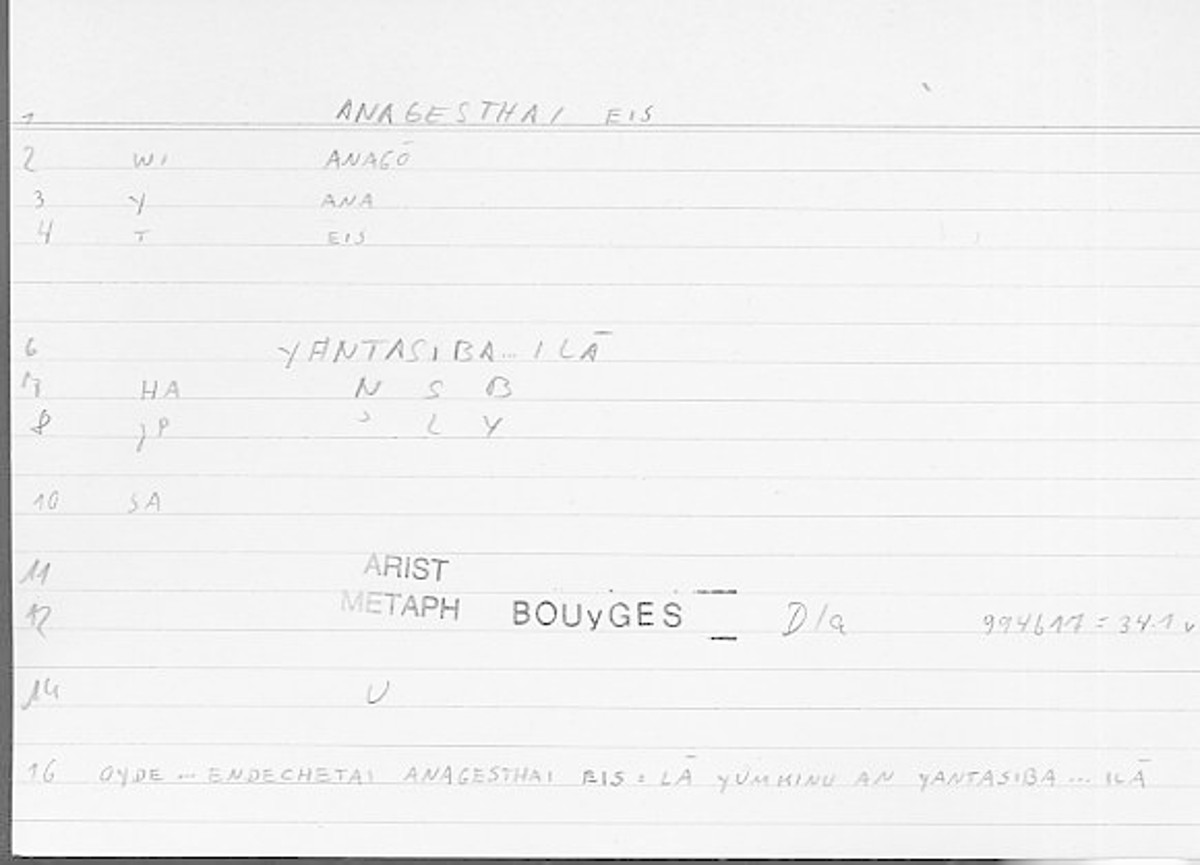 1 ANAGESTHAI EIS
2 WI ANAGŌ
3 Y ANA
4 T EIS
6 YANTASIBA... ILĀ
7 HA N S B
8 JP ʾ L Y
10 SA
11 ARIST
12 METAPH BOUYGES D/a 994617 = 34.1
14 U
16 OYDE ... ENDECHETAI ANAGESTHAI EIS : LĀ YUMKINU AN YANTASIBA ... ILĀ